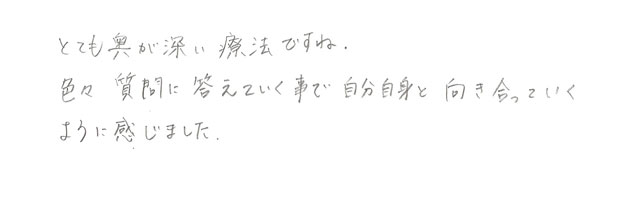 とても奥が深い療法ですね.
色々質問に答えていく事で自分自身と向き合っていく
ように感じました.